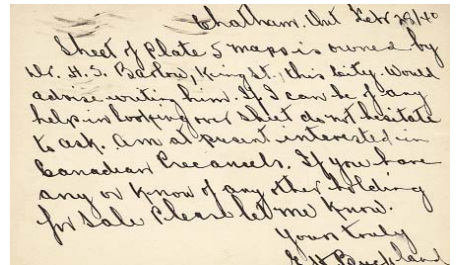 Chatham, Ont Feb 28/40
Sheet of Plate 5 maps is owned by
Dr. H. S. Barlow, King St., this city. Would
advise writing him. If I can be of any
help in looking over sheet do not hesitate
to ask. Am at present interested in
Canadian Precancels. If you have
any or know of any other holding
for sale Please let me know.
Yours truly
Buckland